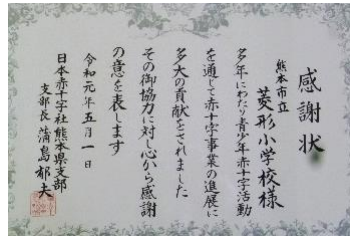 感謝状
熊本市立
菱形小学校様
多年にわたり青少年赤十字活動
を通じて赤十字事業の進展に
多大の貢献をされました
その御協力に対し心から感謝
の意を表します
令和元年五月一日
日本赤十字社熊本県支部
支部長 蒲島郁夫